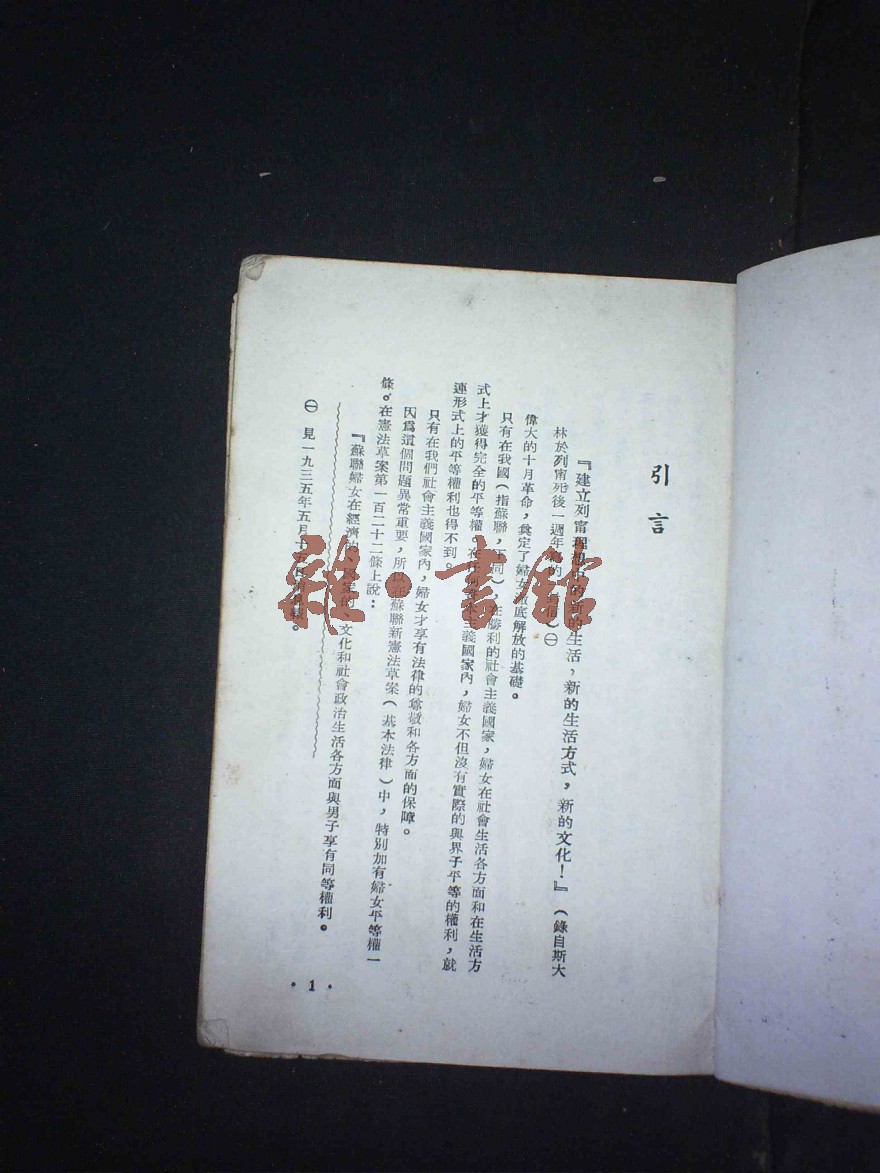 引言
『建立列甯理想中的新的生活，新的生活方式，新的文化！』（錄自斯大
林於列甯死後一週年的信）㊀
偉大的十月革命，奠定了婦女徹底解放的基礎。
只有在我國（指蘇聯，下同），在勝利的社會主義國家，婦女在社會生活各方面和在生活方
式上才獲得完全的平等權。在任何資本主義國家內，婦女不但沒有實際的與界子平等的權利，就
連形式上的平等權利也得不到。
只有在我們社會主義國家內，婦女才享有法律的尊敬和各方面的保障。
因爲這個問題異常重要，所以在蘇聯新憲法草案（基本法律）中，特別加有婦女平等權一
條。在憲法草案第一百二十二條上說：
『蘇聯婦女在經濟的、國家的、文化和社會政治生活各方面與男子享有同等權利。
㊀ 見一九三五年五月十
• 1 •
雜·書館